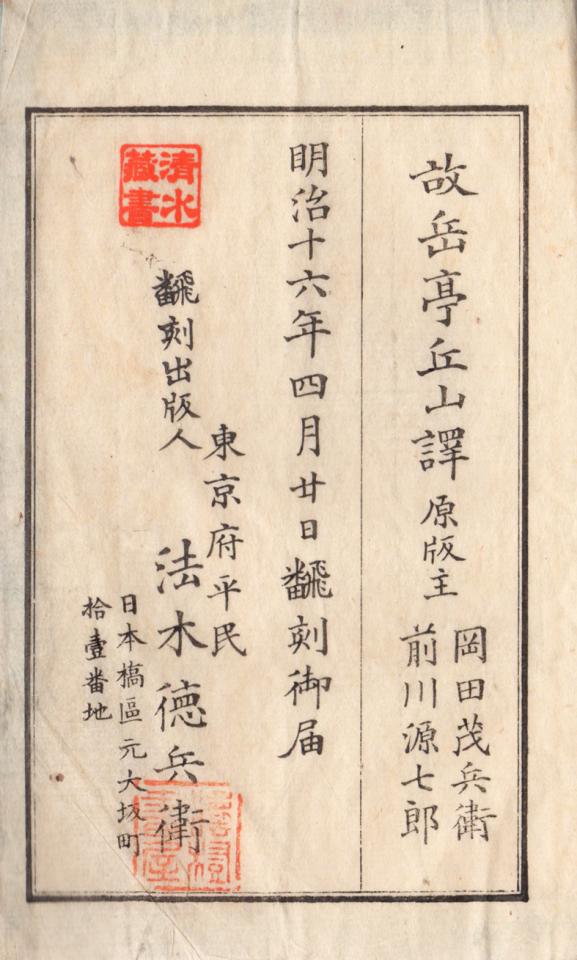 故岳亭丘山譯 原版主
岡田茂兵衛
前川源七郎
明治十六年四月廿日飜刻御届
東京府平民
飜刻出版人 法木徳兵衛
日本橋區元大坂町
拾壹番地
清水
藏書